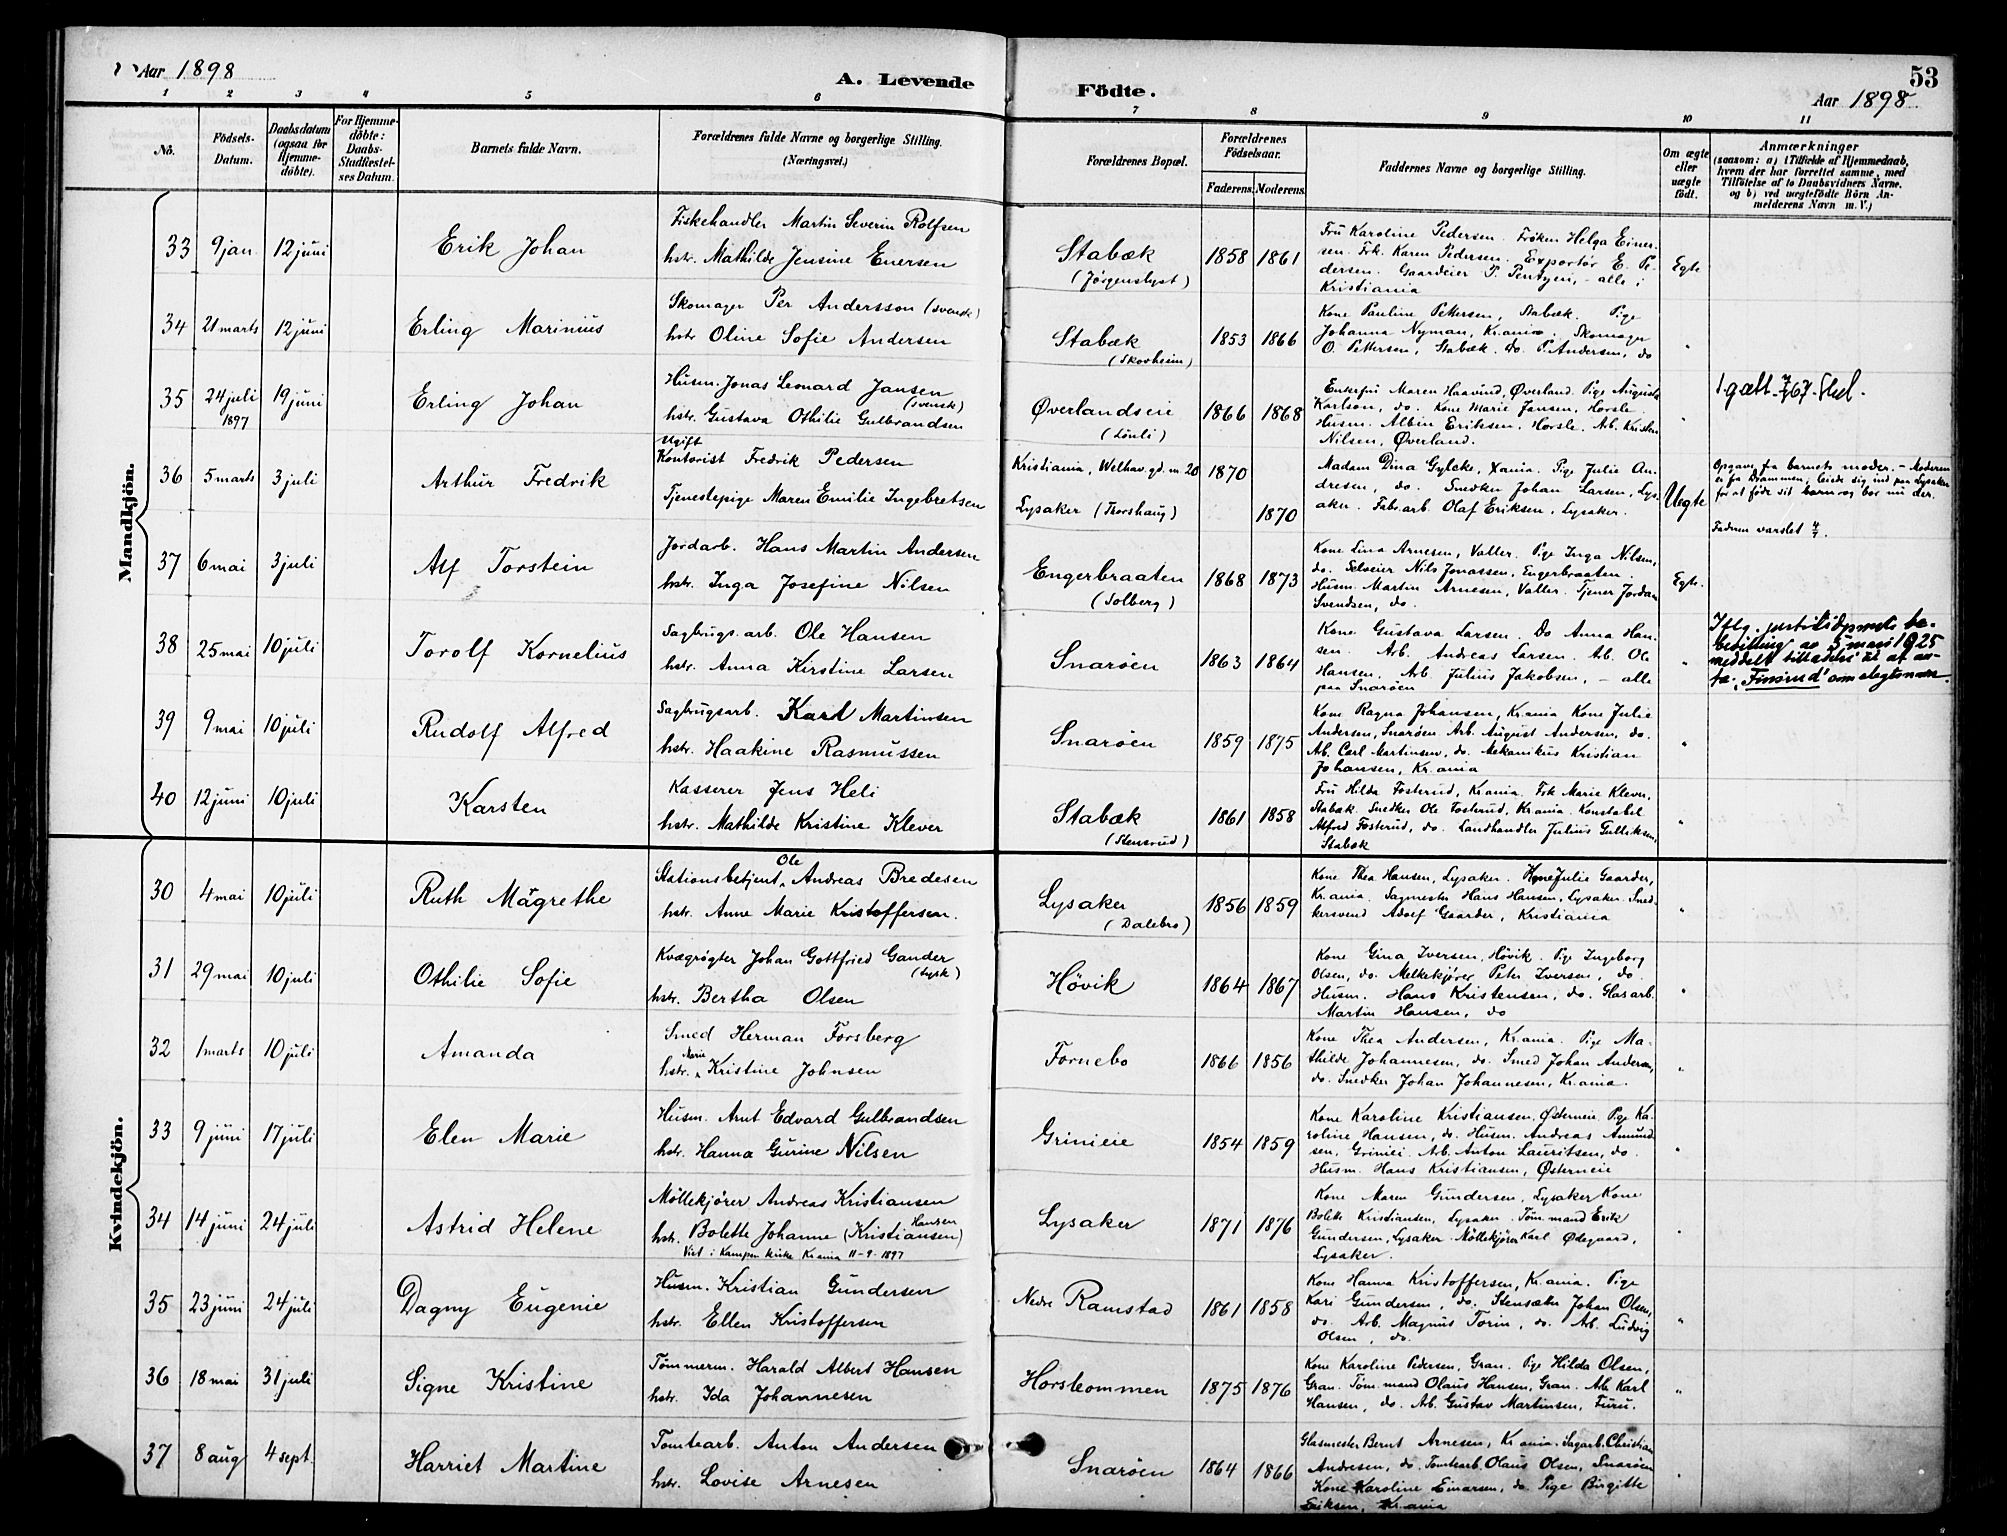 Aar 1898
A. Levende Födte.
53
Aar 1898
1 2 3 4 5 6 7 8 9 10 11
No.
Födsels-Datum.
Daabsdatum (ogsaa for Hjemme-döbte).
For Hjemme-döbte: Daabs-Stadfæstel-ses Datum.
Barnets fulde Navn.
Forældrenes fulde Navne og borgerlige Stilling. (Næringsvei.)
Forældrenes Bopæl.
Forældrenes Födselsaar.
Faderens. Moderens.
Faddernes Navne og borgerlige Stilling.
Om ægte eller uægte födt.
Anmærkninger
(saasom: a) i Tilfælde af Hjemmedaab,
hvem der har forrettet samme, med
Tilföielse af to Daabsvidners Navne,
og b) ved uægtefödte Börn An-
melderens Navn m. V.)
Mandkjön.
33 9 jan 12 juni Erik Johan
Fiskehandler Martin Severin Rolfsen
hstr. Mathilde Jensine Enersen
Stabæk (Jørgenslyst) 1858 1861
Fru Karoline Pedersen. Frøken Helga Einer-
sen. Frk. Karen Pedersen. Exportør E. Pe-
dersen. Gaardeier P. Pentzen, - alle i
Kristiania
Egte
34 21 marts 12 juni Erling Marinius
Skomager Per Andersson (svensk)
hstr Oline Sofie Andersen
Stabæk (Skovheim) 1853 1866
Kone Pauline Pettersen, Stabæk. Pige
Johanna Nyman, Kr.ania. Skomager
O. Pettersen, Stabæk. Do. P. Andersen, do
"
35 24 juli 1897 19 juni Erling Johan
Husm. Jonas Leonard Jansen (svensk)
hstr. Gustava Othilie Gulbrandsen
Øverlandseie (Lönli) 1866 1868
Enkefru Maren Haavind, Øverland. Pige Augusta
Karlson, do. Kone Marie Jansen, Horsle.
Husm. Albin Eriksen, Horsle. Arb. Kristen
Nilsen, Øverland.
"
36 5 marts 3 juli Arthur Fredrik
Ugift
Kontorist Fredrik Pedersen
Tjenestepige Maren Emilie Ingebretsen
Kristiania, Welhav. gd. n. 20 1870
Lysaker (Thorshaug) 1870
Madam Dina Gylcke, Xania. Pige Julie An-
dresen, do. Snedker Johan Larsen, Lys-
aker. Fabr.arb. Olaf Eriksen, Lysaker.
Uegte
Opgave fra barnets moder. - Moderen
er fra Drammen, leiede sig ind paa Lysaker
for at føde sit barn og bor nu der.
Faderen varslet 4/7.
37 6 mai 3 juli Alf Torstein
Jordarb. Hans Martin Andersen
hstr. Inga Josefine Nilsen
Engerbraaten (Solberg) 1868 1873
Kone Lina Arnesen, Valler. Pige Inga Nilsen,
do. Selveier Nils Jonassen, Engerbraaten.
Husm. Martin Arnesen, Valler. Tjener Jordan
Svendsen, do.
Egte.
38 25 mai 10 juli Torolf Kornelius
Sagbrugs. arb. Ole Hansen
hstr. Anna Kirstine Larsen
Snarøen 1863 1864
Kone Gustava Larsen. Do Anna Han-
sen. Arb. Andreas Larsen. Arb. Ole
Hansen. Arb. Julius Jakobsen, - alle
paa Snarøen
"
Iflg. justitidpmts be-
bevilling av 5 mars 1925
meddelt tilladelse til at an-
ta "Finsrud" som slegtsnavn.
39 9 mai 10 juli Rudolf Alfred
Sagbrugsarb. Karl Martinsen
hstr. Haakine Rasmussen
Snarøen 1859 1875
Kone Ragna Johansen, Kr.ania Kone Julie
Andersen, Snarøen. Arb. August Andersen, do.
Ab. Carl Martinsen, do. Mekanikus Kristian
Johansen, Kr.ania
"
40 12 juni 10 juli Karsten
Kasserer Jens Heli
hstr. Mathilde Kristine Klever
Stabæk (Stensrud) 1861 1858
Fru Hilda Fosterud, Kr.ania. Frk Marie Klever,
Stabæk. Snedker Ole Fosterud, Kr.ania. Konstabel
Alfred Fosterud, do. Landhandler Julius Gulliksen,
Stabæk
"
Kvindekjön.
30 4 mai 10 juli Ruth Magrethe
Stationsbetjent Ole Andreas Bredesen
hstr. Anne Marie Kristoffersen.
Lysaker (Dalebro) 1856 1859
Kone Thea Hansen, Lysaker. Kone Julie Gaarder,
Kr.ania. Sagmester Hans Hansen, Lysaker. Sned-
kersvend Adolf Gaarder, Kristiania
"
31 29 mai 10 juli Othilie Sofie
Kvægrøgter Johan Gottfried Gander (tysk)
hstr. Bertha Olsen
Høvik 1864 1867
Kone Gina Iversen, Høvik. Pige Ingeborg
Olsen, do. Melkekjører Peter Iversen, do.
Husm. Hans Kristensen, do. Glasarb.
Martin Hansen, do
"
32 1 marts 10 juli Amanda
Smed Herman Forsberg
hstr. Marie Kristine Johnsen
Fornebo 1866 1856
Kone Thea Andersen, Kr.ania. Pige Ma-
thilde Johannesen, do. Smed Johan Andersen,
do. Snedker Johan Johannesen, Kr.ania.
"
33 9 juni 17 juli Elen Marie
Husm. Arnt Edvard Gulbrandsen
hstr. Hanna Gurine Nilsen
Grinieie 1854 1859
Kone Karoline Kristiansen, Østerneie. Pige Ka-
roline Hansen, do. Husm. Andreas Amund-
sen, Griniei. Arb. Anton Lauritsen, do.
Husm. Hans Kristiansen, Østerneie
"
34 14 juni 24 juli Astrid Helene
Möllekjører Andreas Kristiansen
hstr. Bolette Johanne Hansen (Kristiansen)
Viet i Kampen kirke Kr.ania 11-9-1897
Lysaker 1871 1876
Kone Maren Gundersen, Lysaker Kone
Bolette Kristiansen, Lysaker. Tømmand Erik
Gundersen, Lysaker. Möllekjører Karl Ødegaard,
Lysaker.
"
35 23 juni 24 juli Dagny Eugenie
Husm. Kristian Gundersen
hstr. Ellen Kristoffersen
Nedre Ramstad 1861 1858
Kone Hanna Kristoffersen, Kr.ania. Pige
Kari Gundersen, do. Stensætter Johan Olsen,
do. Arb. Magnus Torin, do. Arb. Ludvig
Olsen, do.
"
36 18 mai 31 juli Signe Kristine
Tömmerm. Harald Albert Hansen
hstr. Ida Johannesen
Horslommen 1875 1876
Kone Karoline Pedersen, Gran. Pige Hilda Olsen,
Gran. Tømmand Olaus Hansen, Gran. Arb. Karl
Hansen, do. Arb. Gustav Martinsen, Furu.
"
37 8 aug 4 sept. Harriet Martine
Tomtearb. Anton Andersen
hstr. Lovise Arnesen
Snarøen 1864 1866
Glasmester Bernt Arnesen, Kr.ania. Sagarb. Christian
Andresen, do. Tomtearb. Olaus Olsen, Snarøen
Kone Karoline Einarsen, do. Pige Birgitte
Eriksen, Kr.ania
"